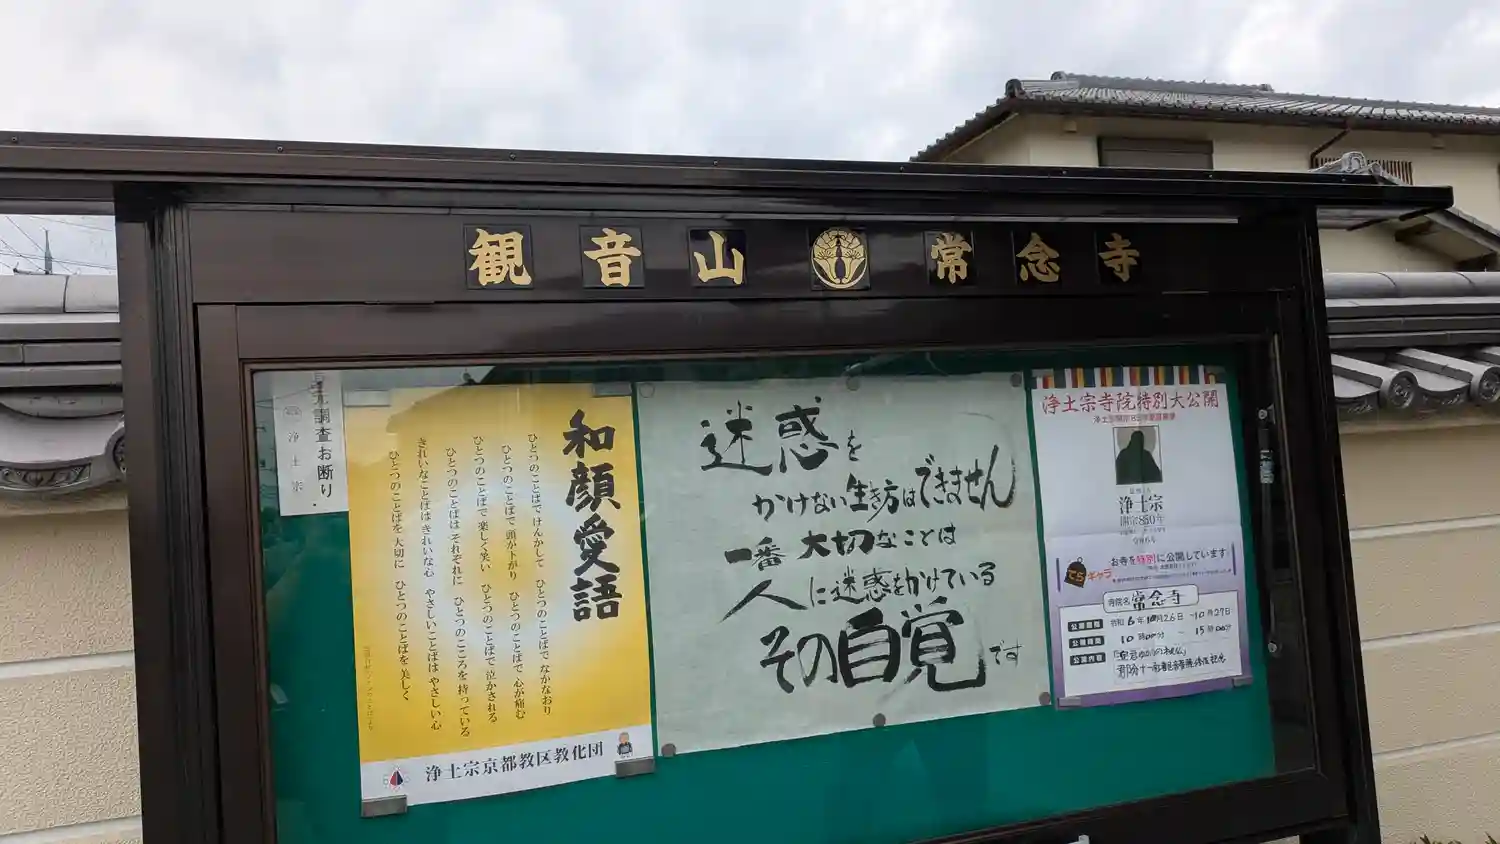 観音山 常念寺
調査お断り
浄土宗
和顔愛語
ひとつのことばで けんかして ひとつのことばで なかなおり
ひとつのことばで 頭が下がり ひとつのことばで 心が痛む
ひとつのことばで 楽しく笑い ひとつのことばで 泣かされる
ひとつのことばは それぞれに ひとつのこころを 持っている
きれいなことばは きれいな心 やさしいことばは やさしい心
ひとつのことばを 大切に ひとつのことばを 美しく
浄土宗京都教区教化団
迷惑を
かけない生き方はできません
一番大切なことは
人に迷惑をかけている
その自覚です
浄土宗寺院特別大公開
浄土宗
開宗850年
お寺を特別に公開しています
てらギャラ
寺院名 常念寺
令和6年10月26日~10月27日
10時00分 ~ 15時00分
公開内容